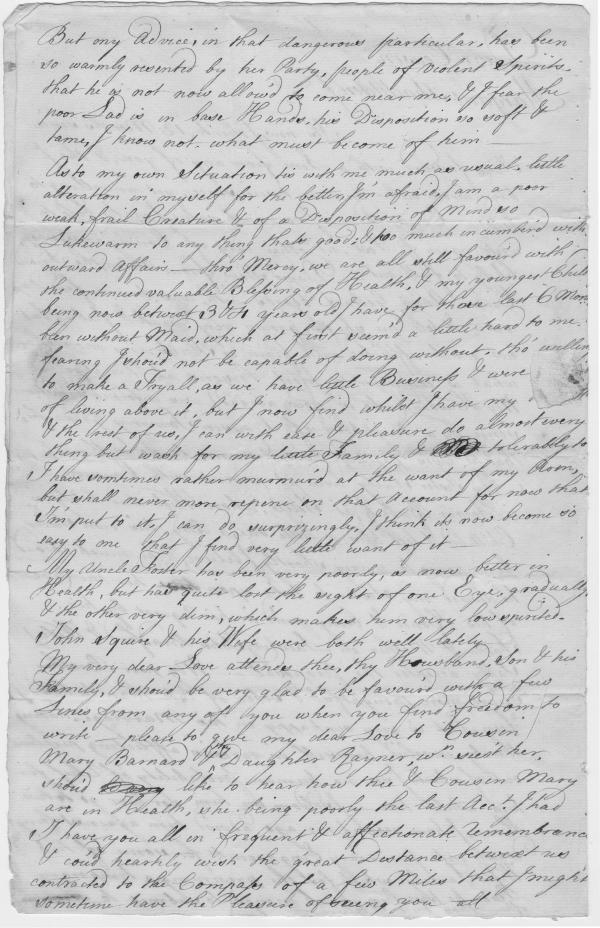 But my Advice, in that dangerous particular, has been
so warmly resented by her Party, people of violent Spirits,
that he is not now allow'd to come near me, & I fear the
poor Lad is in base Hands, his Disposition so soft &
tame, I know not what must become of him —
As to my own Situation tis with me much as usual, little
alteration in myself for the better, I'm afraid, I am a poor
weak, frail Creature & of a Disposition of Mind so
Lukewarm to any thing thats good, & too much incumber'd with
outward Affairs — thro' Mercy, we are all still favour'd with
the continued valuable Blessing of Health, & my youngest Child
being now betwixt 3 & 4 years old I have for these last 6 Mon:
ben without Maid, which at first seem'd a little hard to me
fearing I shou'd not be capable of doing without, tho' willing
to make a Tryall, as we have little Business & were
of living above it, but I now find whilst I have my
& the rest of us, I can with ease & pleasure do almost every
thing but wash for my little Family & tolerably to
I have somtimes rather murmur'd at the want of my Arm,
but shall never more repine on that Account for now that
I'm put to it, I can do surprizingly, I think its now become so
easy to me that I find very little want of it —
My Uncle Foster has been very poorly, is now better in
Health, but has quite lost the sight of one Eye, gradually,
& the other very dim, which makes him very low spirited.
John Squire & his Wife were both well lately
My very dear Love attends thee, thy Housband, Son & his
Family, & shou'd be very glad to be favour'd with a few
Lines from any of you when you find freedom to
write — please to give my dear Love to Cousin
Mary Barnard & thy Daughter Rayner, wn. seest her,
shou'd like to hear how thee & Cousin Mary
are in Health, she being poorly the last Acct. I had
I have you all in frequent & affectionate remembrance
& cou'd heartily wish the great Distance betwixt us
contracted to the Compass of a few Miles that I might
sometime have the Pleasure of seeing you all